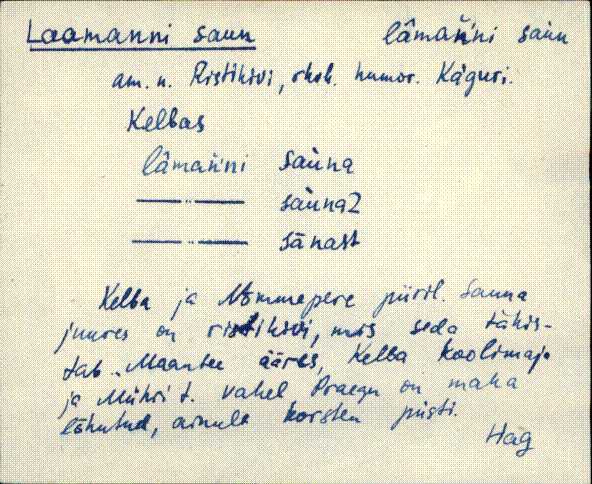 Laamanni saun lâmaǹ'ni sàun
am. n. Ristikivi, rhvk. humor. Käguri.
Kelbas
lâmaǹ'ni sàuna
—— " —— sàuna2
—— " —— sānast
Kelba ja Nõmmepere piiril. Sauna
juures on ristikivi, mis seda tähis-
tab. Maantee ääres, Kelba koolimaja
ja Mühri t. vahel. Praegu on maha
lõhutud, ainult korsten püsti.
Hag